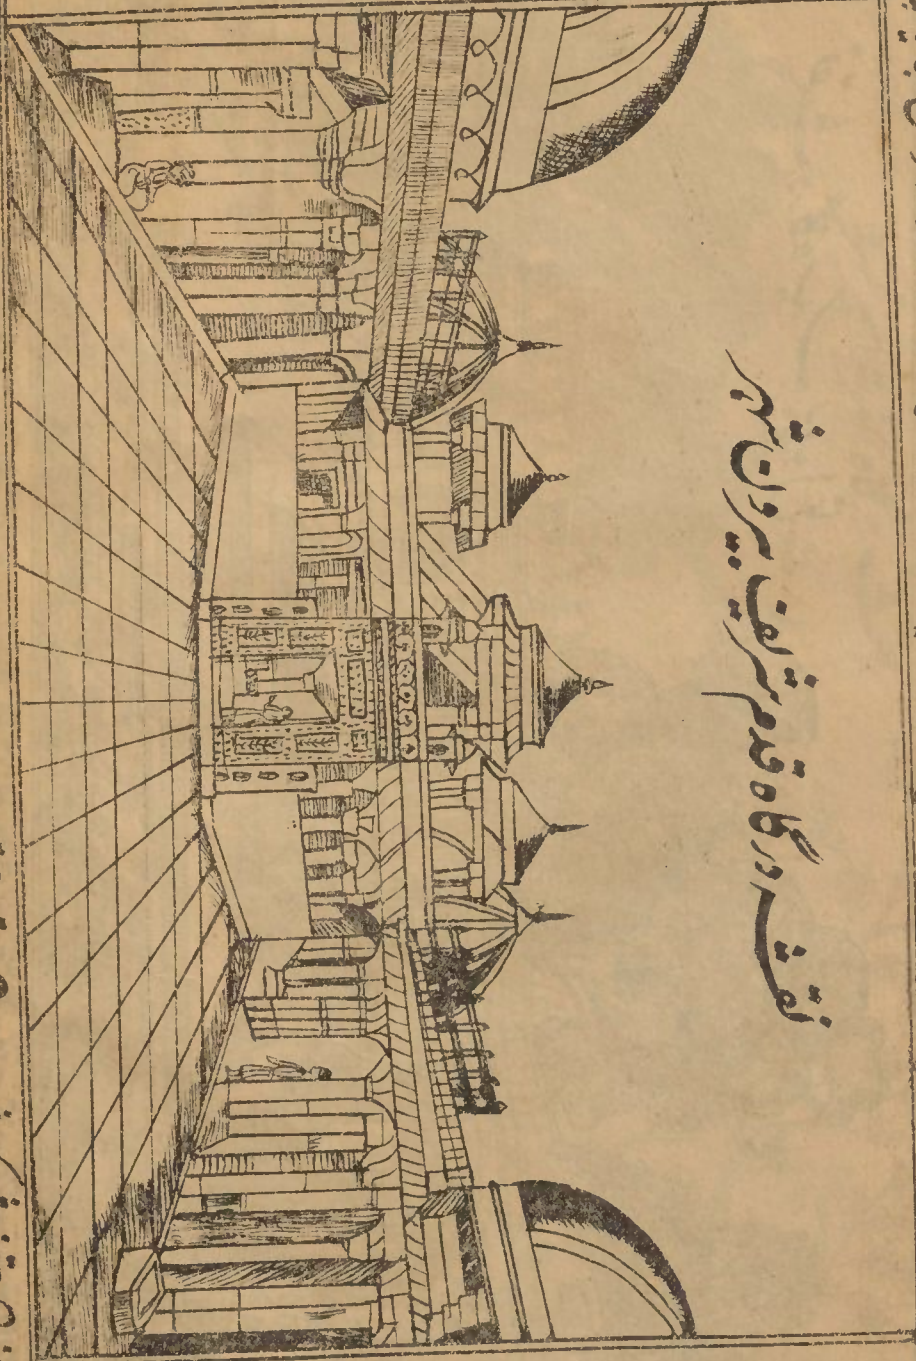 نقشہ درگاہ قدم شریف بیرون شہر